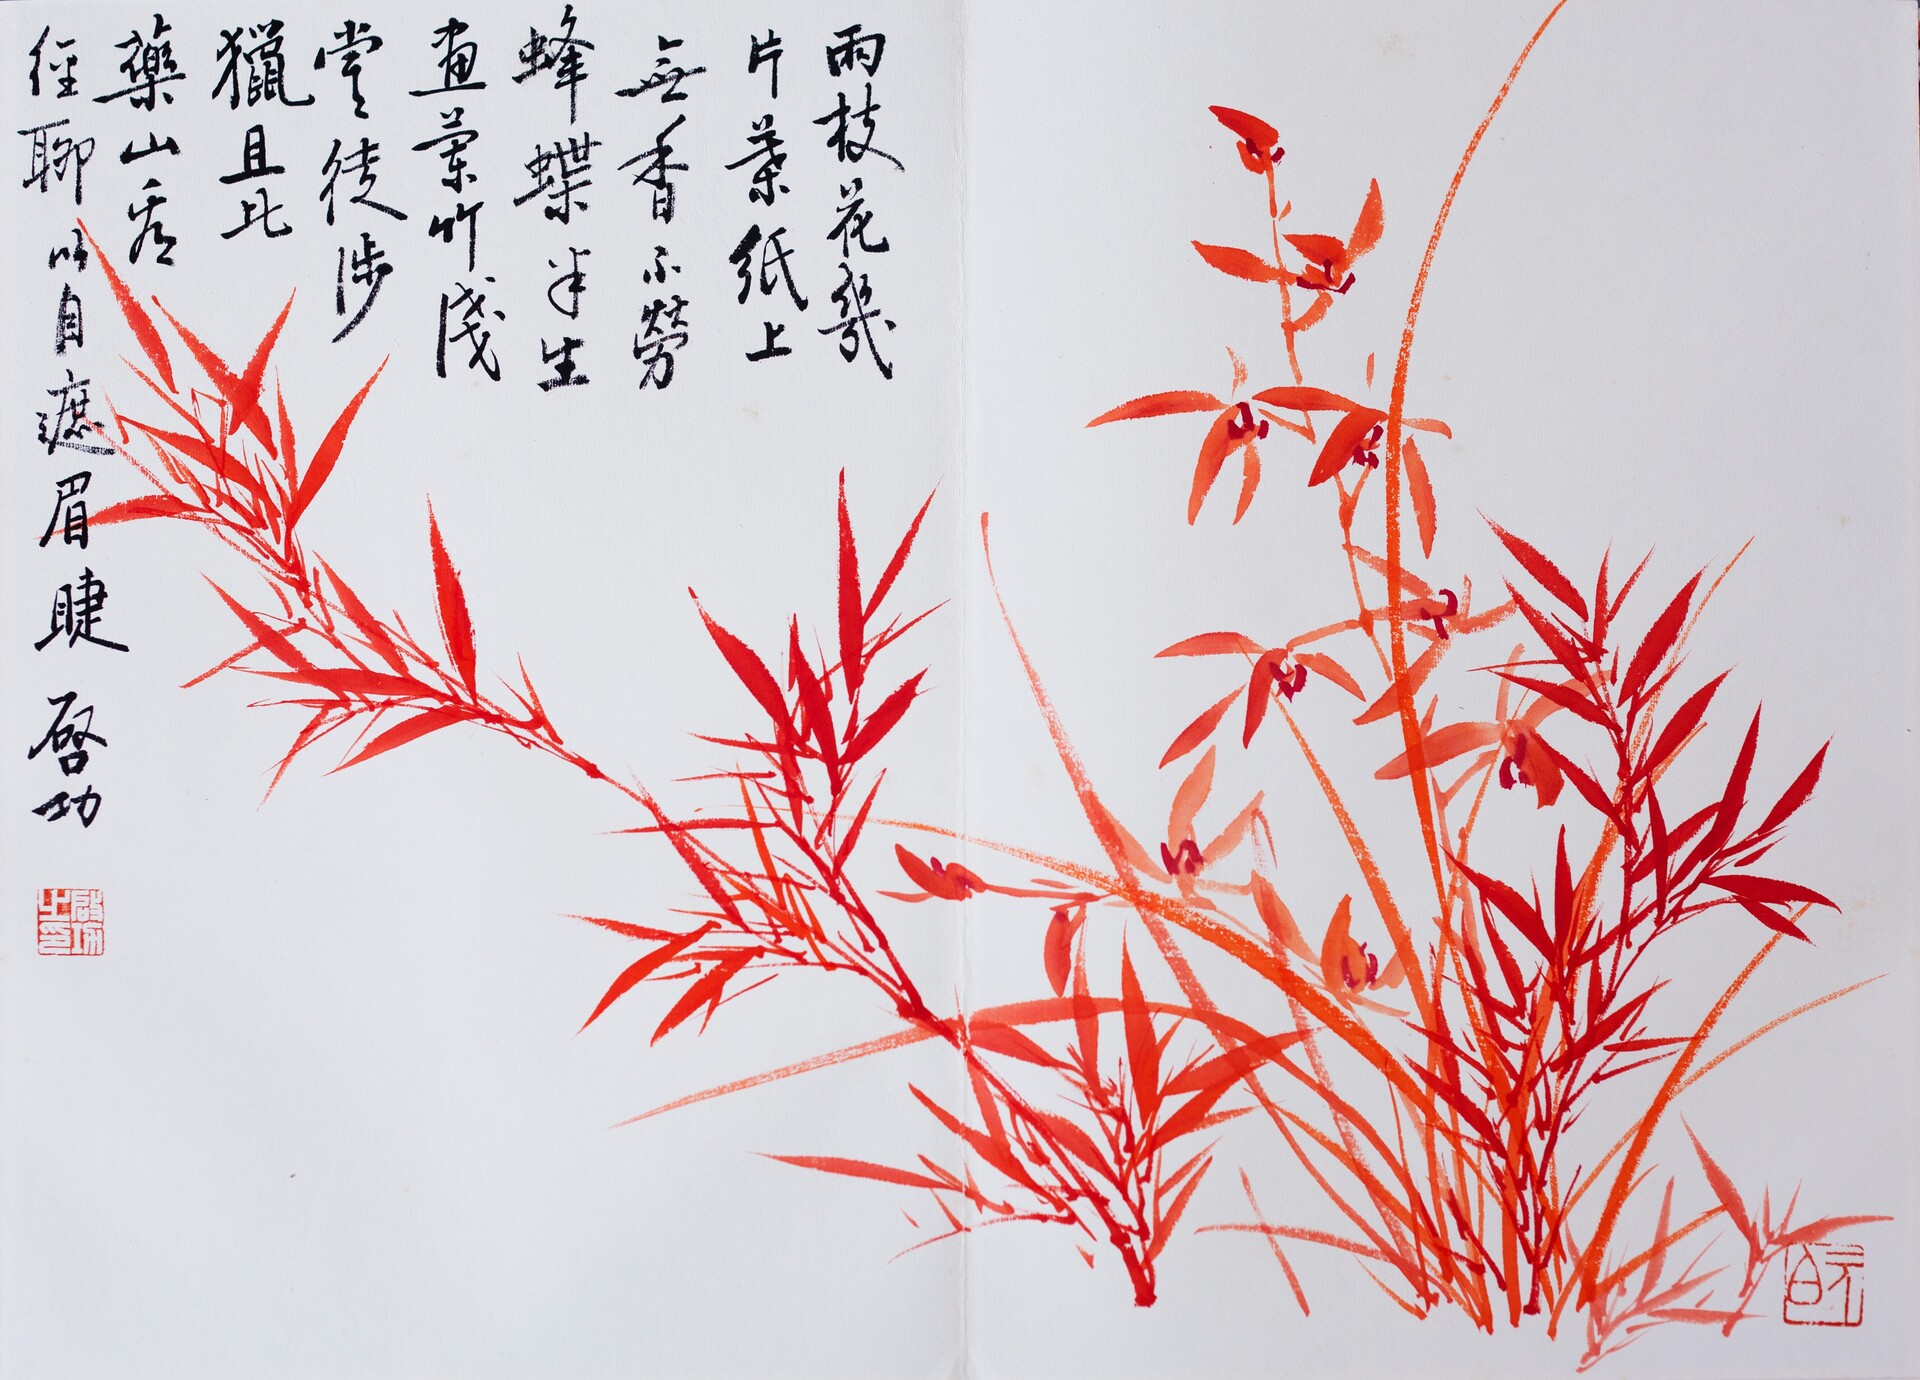 兩枝花幾
片葉紙上
無香不勞
蜂蝶半生
畫蘭竹淺
嘗徒涉
獵且比
藥山看
經聊以自遮眉睫 啓功
啓功之印
元白